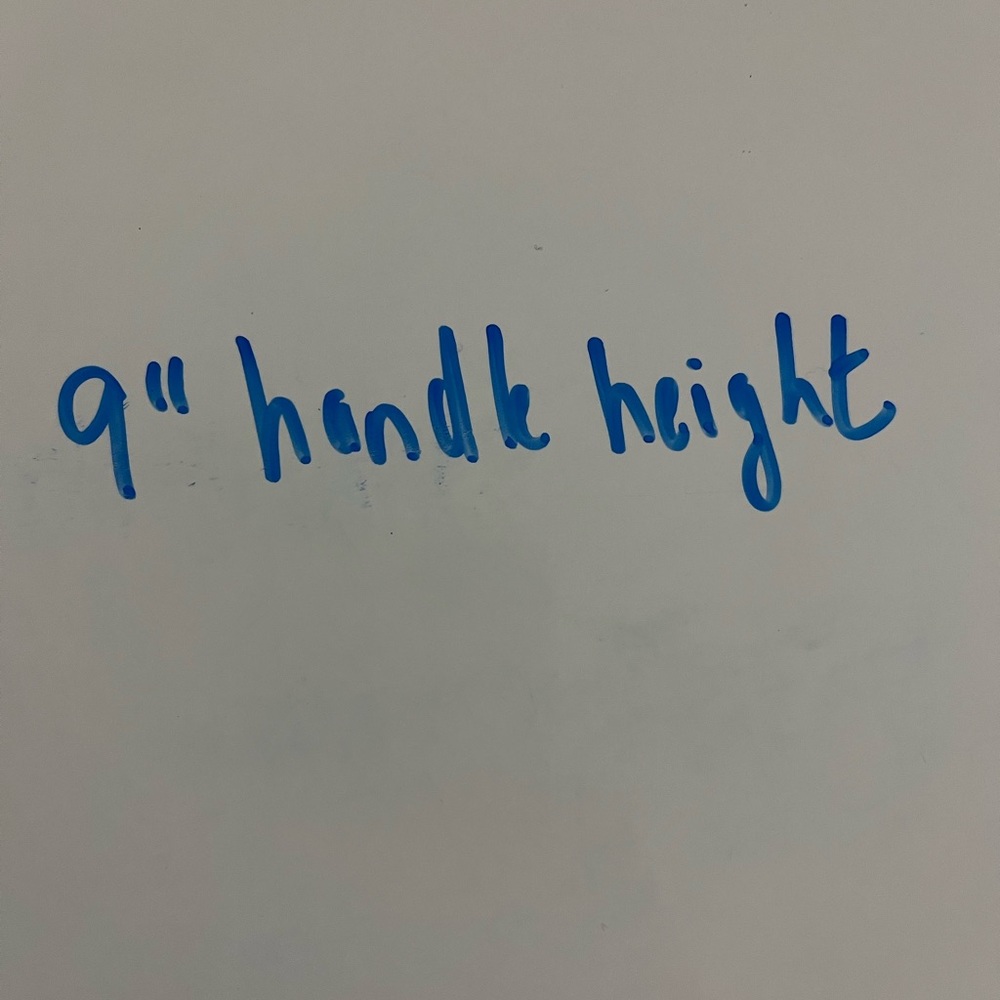 9" handle height